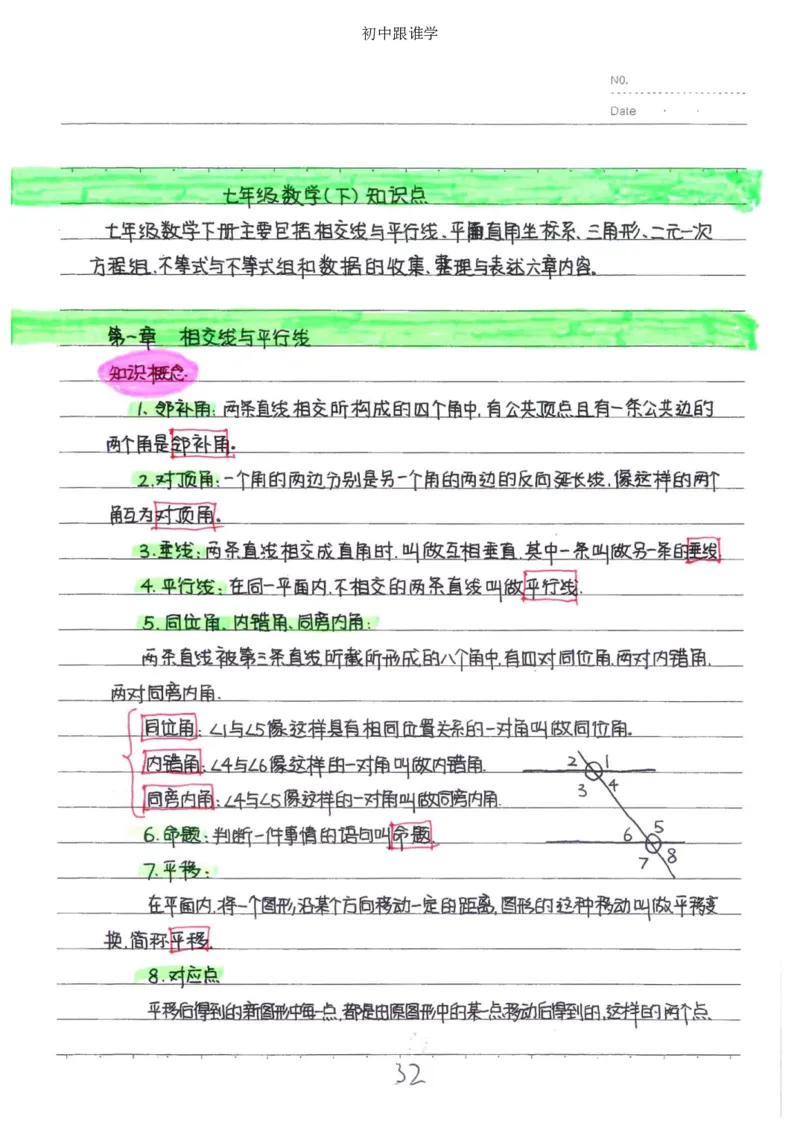 初中跟谁学
NO.
Date
七年级数学(下)知识点
七年级数学下册主要包括相交线与平行线、平面直角坐标系、三角形、二元一次
方程组,不等式与不等式组和数据的收集、整理与表述六章内容。
第一章 相交线与平行线
知识概念
1. 邻补角: 两条直线相交所构成的四个角中,有公共顶点且有一条公共边的
两个角是邻补角。
2.对顶角:一个角的两边分别是另一个角的两边的反向延长线,像这样的两个
角互为对顶角。
3.垂线:两条直线相交成直角时,叫做互相垂直,其中一条叫做另一条的垂线
4.平行线:在同一平面内,不相交的两条直线叫做平行线.
5.同位角、内错角、同旁内角:
两条直线被第三条直线所截所形成的八个角中,有四对同位角,两对内错角,
两对同旁内角.
同位角:∠1与∠5像这样具有相同位置关系的一对角叫做同位角。
内错角:∠4与∠6像这样的一对角叫做内错角.
同旁内角:∠4与∠5像这样的一对角叫做同旁内角.
2 1
3 4
6 5
7 8
6.命题:判断一件事情的语句叫命题.
7.平移:
在平面内,将一个图形沿某个方向移动一定的距离,图形的这种移动叫做平移变
换,简称平移.
8.对应点
平移后得到的新图形中每一点,都是由原图形中的某一点移动后得到的,这样的两个点
32